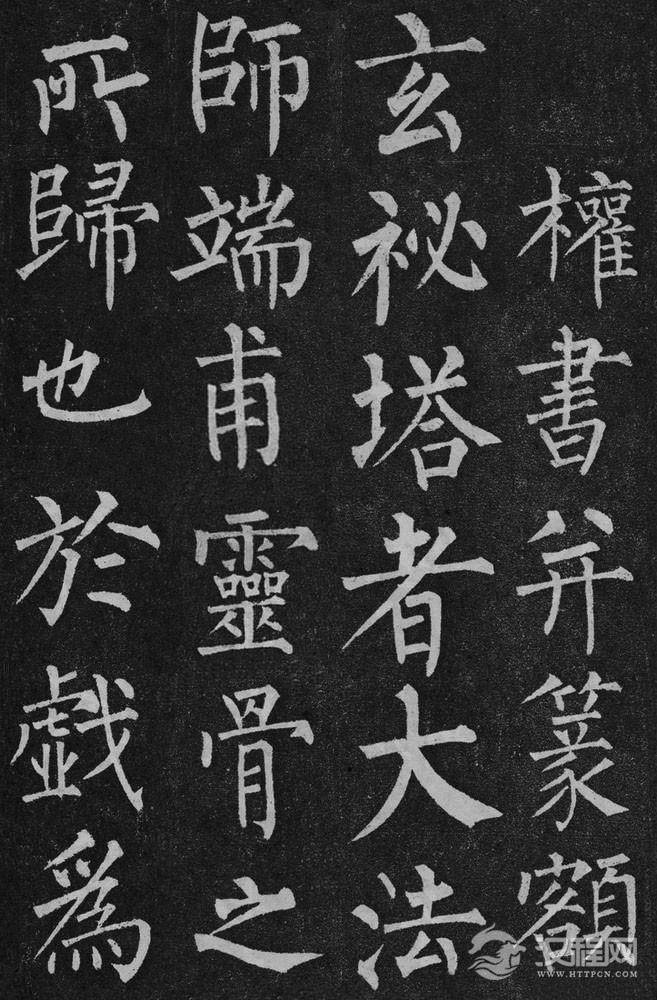 權書并篆額
玄祕塔者大法
師端甫靈骨之
所歸也於戲為
汉程网
WWW.HTTPCN.COM